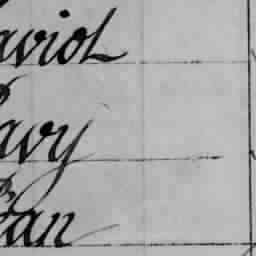 aviot
avy
ean